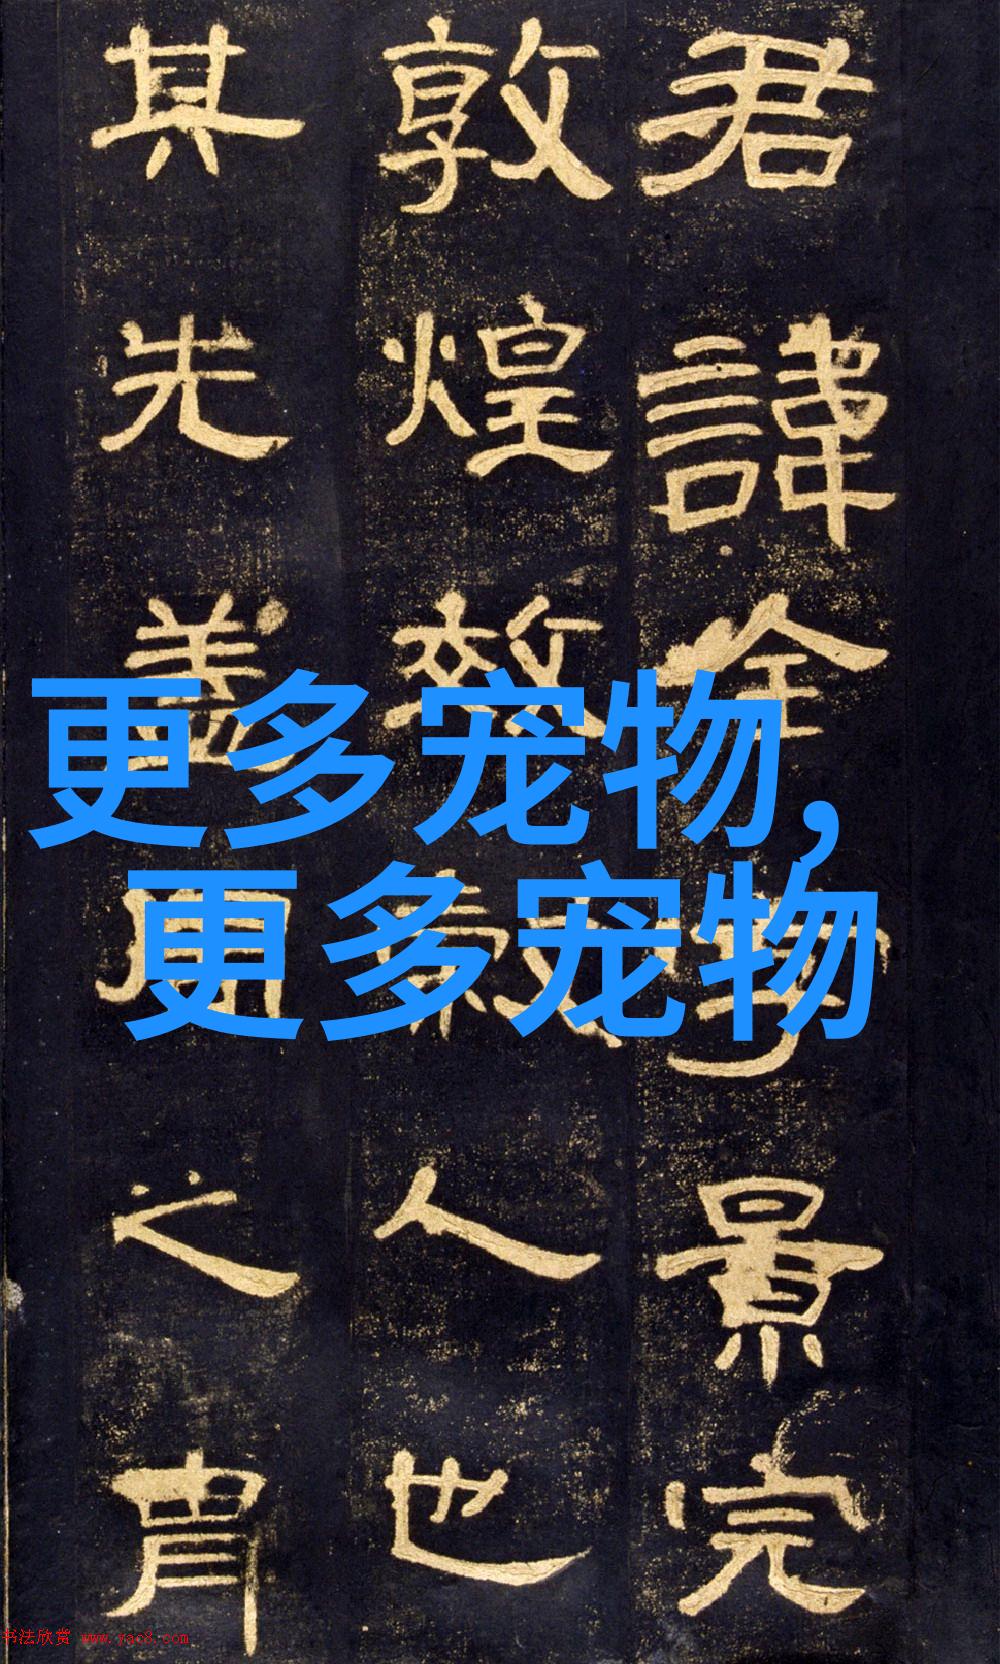 君諱全字景完
敦煌效人也
其先蓋周之冑
更多宠物,
更多宠物
书法欣赏 www.yac8.com